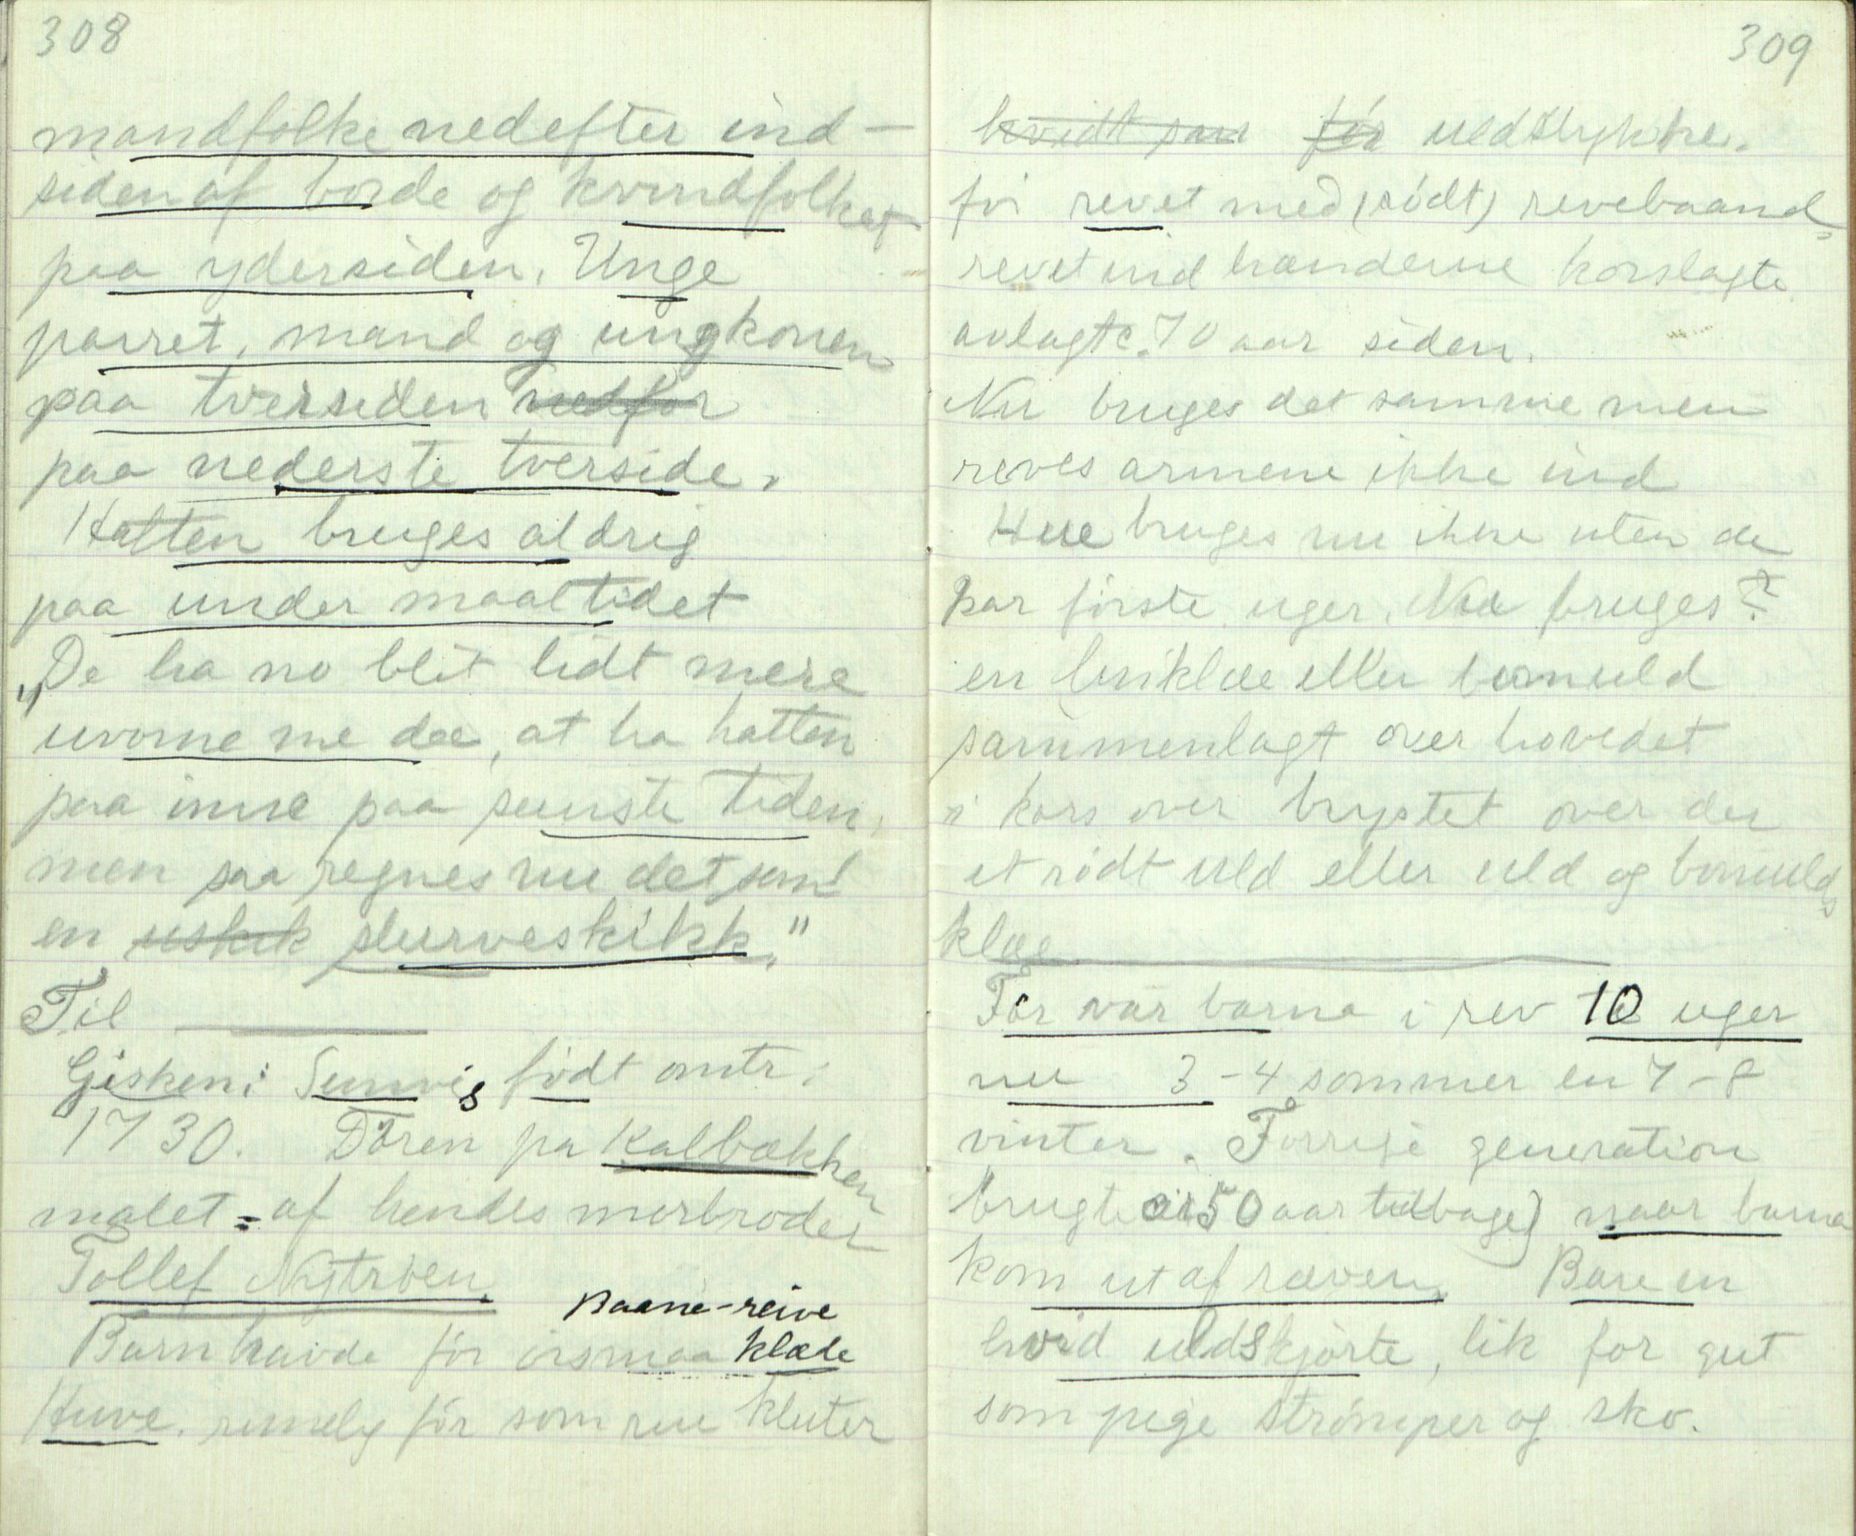 308
mandfolke nedefter ind-
siden af borde og kvindfolket
paa ydersiden. Unge
parret, mand og ungkonen
paa tversiden nedfor
paa nederste tverside.
Hatten bruges aldrig
paa under maaltidet
"De ha no blit lidt mere
uvorne me dæ, at ha hatten
paa inne paa seinste tiden,
men saa regnes nu det som
en uskik slurveskikk."
Til
Gisken i Sunvis født omtr.
1730. Døren pa Kalbækken
malet af hendes morbroder
Tollef Nytrøen.
Baane-reive
Barn havde før klæde
Huve. rimely før som nu kluter
309
hvidt før uldstykke.
før revet med (rødt) revebaand
revet ind hænderne korslagte
avlagte. 70 aar siden.
Nu bruges det samme men
reves armene ikke ind
Hue bruges nu ikke uten de
par første uger. Naa bruges?
en linklæe eller bomuld
sammenlagt over hovedet
i kors over brystet over der
et rødt uld eller uld og bomulds
klæe
Før var barna i rev 10 uger
nu 3-4 sommer en 7-8
vinter. Forrige generation
brugte 50 aar tilbage) naar barna
kom ut af ræven. Bare en
hvid uldskjorte, lik for gut
som pige strømper og sko.